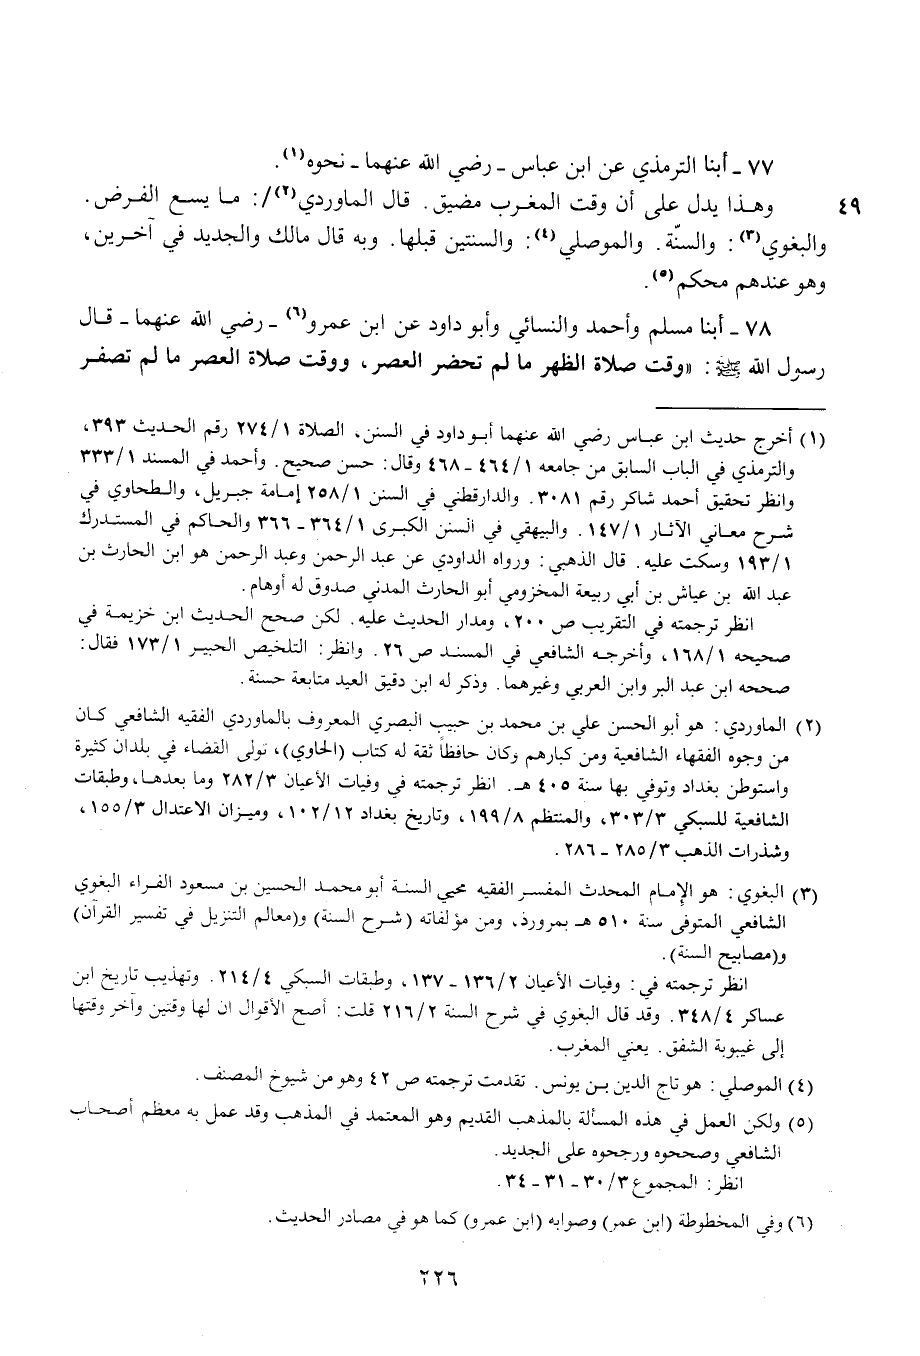 ٧٧ ـ أبنا الترمذي عن ابن عباس ـ رضي الله عنهما ـ نحوه(١).
وهذا يدل على أن وقت المغرب مضيق. قال الماوردي(٢)/: ما يسع الفرض.
٤٩
والبغوي(٣): والسنّة. والموصلي(٤): والسنتين قبلها. وبه قال مالك والجديد في آخرين،
وهو عندهم محكم(٥).
٧٨ ـ أبنا مسلم وأحمد والنسائي وأبو داود عن ابن عمرو(٦) ـ رضي الله عنهما ـ قال
رسول الله ﷺ: «وقت صلاة الظهر ما لم تحضر العصر، ووقت صلاة العصر ما لم تصفر
(١) أخرج حديث ابن عباس رضي الله عنهما أبو داود في السنن، الصلاة ٢٧٤/١ رقم الحديث ٣٩٣،
والترمذي في الباب السابق من جامعه ٤٦٤/١ ـ ٤٦٨ وقال: حسن صحيح. وأحمد في المسند ٣٣٣/١
وانظر تحقيق أحمد شاكر رقم ٣٠٨١. والدارقطني في السنن ٢٥٨/١ إمامة جبريل، والطحاوي في
شرح معاني الآثار ١٤٧/١. والبيهقي في السنن الكبرى ٣٦٤/١ ـ ٣٦٦ والحاكم في المستدرك
١٩٣/١ وسكت عليه. قال الذهبي: ورواه الداودي عن عبد الرحمن وعبد الرحمن هو ابن الحارث بن
عبد الله بن عياش بن أبي ربيعة المخزومي أبو الحارث المدني صدوق له أوهام.
انظر ترجمته في التقريب ص ٢٠٠، ومدار الحديث عليه. لكن صحح الحديث ابن خزيمة في
صحيحه ١٦٨/١، وأخرجه الشافعي في المسند ص ٢٦. وانظر: التلخيص الحبير ١٧٣/١ فقال:
صححه ابن عبد البر وابن العربي وغيرهما. وذكر له ابن دقيق العيد متابعة حسنة.
(٢) الماوردي: هو أبو الحسن علي بن محمد بن حبيب البصري المعروف بالماوردي الفقيه الشافعي كان
من وجوه الفقهاء الشافعية ومن كبارهم وكان حافظاً ثقة له كتاب (الحاوي)، تولى القضاء في بلدان كثيرة
واستوطن بغداد وتوفي بها سنة ٤٠٥ هـ. انظر ترجمته في وفيات الأعيان ٢٨٢/٣ وما بعدها، وطبقات
الشافعية للسبكي ٣٠٣/٣، والمنتظم ١٩٩/٨، وتاريخ بغداد ١٠٢/١٢، وميزان الاعتدال ١٥٥/٣،
وشذرات الذهب ٢٨٥/٣ ـ ٢٨٦.
(٣) البغوي: هو الإمام المحدث المفسر الفقيه محيي السنة أبو محمد الحسين بن مسعود الفراء البغوي
الشافعي المتوفى سنة ٥١٠ هـ بمروروذ، ومن مؤلفاته (شرح السنة) و(معالم التنزيل في تفسير القرآن)
و(مصابيح السنة).
انظر ترجمته في: وفيات الأعيان ١٣٦/٢ ـ ١٣٧، وطبقات السبكي ٢١٤/٤. وتهذيب تاريخ ابن
عساكر ٣٤٨/٤. وقد قال البغوي في شرح السنة ٢١٦/٢ قلت: أصح الأقوال ان لها وقتين وآخر وقتها
إلى غيبوبة الشفق. يعني المغرب.
(٤) الموصلي: هو تاج الدين بن يونس. تقدمت ترجمته ص ٤٢ وهو من شيوخ المصنف.
(٥) ولكن العمل في هذه المسألة بالمذهب القديم وهو المعتمد في المذهب وقد عمل به معظم أصحاب
الشافعي وصححوه ورجحوه على الجديد.
انظر: المجموع ٣٠/٣ ـ ٣١ ـ ٣٤.
(٦) وفي المخطوطة (ابن عمر) وصوابه (ابن عمرو) كما هو في مصادر الحديث.
٢٢٦